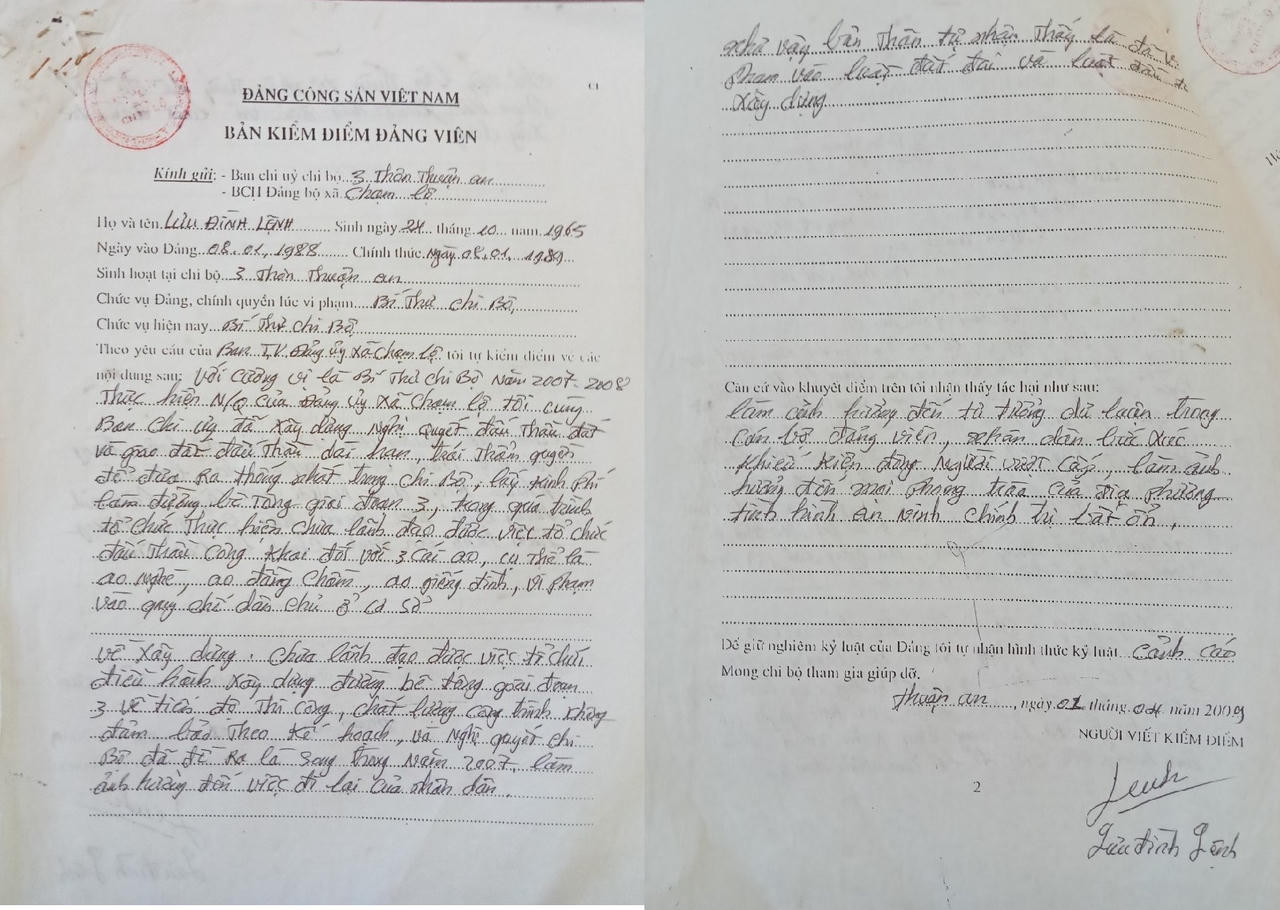 ĐẢNG CỘNG SẢN VIỆT NAM
BẢN KIỂM ĐIỂM ĐẢNG VIÊN
Kính gửi: - Ban chi uỷ chi bộ 3 Thôn Thuận an
- BCH Đảng bộ xã Chạm lộ
Họ và tên LƯU ĐÌNH LỆNH Sinh ngày 24 tháng 10 năm 1965
Ngày vào Đảng 08.01.1988 Chính thức Ngày 08.01.1989
Sinh hoạt tại chi bộ 3 Thôn Thuận an
Chức vụ Đảng, chính quyền lúc vi phạm Bí Thư chi Bộ,
Chức vụ hiện nay Bí Thư chi Bộ
Theo yêu cầu của Ban T.V. Đảng ủy Xã Chạm lộ tôi tự kiểm điểm về các
nội dung sau: Với Cương vị là Bí Thư chi Bộ Năm 2007-2008
Thực hiện N/Q của Đảng ủy Xã Chạm lộ tôi cùng
Ban Chi ủy đã xây dựng Nghị quyết đấu Thầu đất
và giao đất đấu Thầu dài hạn, trái Thẩm quyền
để đưa Ra Thống nhất trong chi Bộ, lấy kinh phí
làm đường bê Tông giai đoạn 3, trong quá trình
tổ chức Thực hiện chưa lãnh đạo được việc tổ chức
đấu Thầu Công Khai đối với 3 cái ao, cụ Thể là
ao Nghè, ao đồng Chầm, ao giếng đình, vi phạm
vào quy chế dân chủ ở cơ sở
về xây dựng. Chưa lãnh đạo được việc tổ chức
điều hành xây dựng đường bê tông giai đoạn
3 về tiến độ Thi công, chất lượng công trình không
đảm bảo Theo Kế hoạch, và Nghị quyết chi
Bộ đã đề Ra là song trong Năm 2007, làm
ảnh hưởng đến việc đi lại của nhân dân.
như vậy bản Thân tự nhận Thấy là đã vi
phạm vào luật đất đai và luật đầu tư
xây dựng
Căn cứ vào khuyết điểm trên tôi nhận thấy tác hại như sau:
làm ảnh hưởng đến tư tưởng dư luận trong
cán bộ đảng viên, nhân dân bức xúc
khiếu kiện đông Người vượt cấp, làm ảnh
hưởng đến mọi phong trào của địa phương
tình hình an Ninh chính trị bất ổn,
Để giữ nghiêm kỷ luật của Đảng tôi tự nhận hình thức kỷ luật Cảnh Cáo
Mong chi bộ tham gia giúp đỡ.
Thuận an, ngày 01 tháng 04 năm 2009
NGƯỜI VIẾT KIỂM ĐIỂM
2
Lệnh
Lưu đình Lệnh